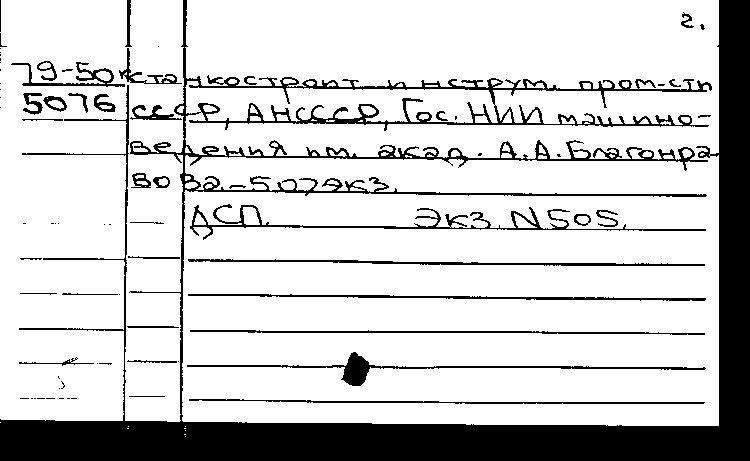 2.
79-50к станкостроит. и нструм. пром-сти
5076 СССР, АНСССР, Гос. НИИ машино-
ведения им. акад. А.А. Благонра-
вова.-507экз.
ДСП. Экз. N505.